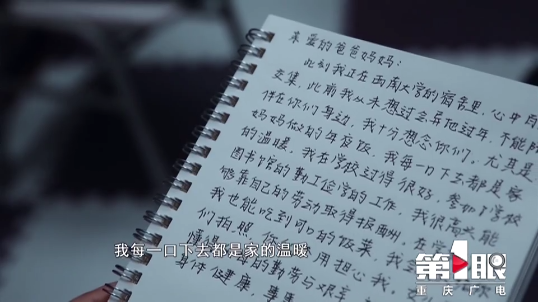 亲爱的爸爸妈妈：
此刻我正在西南大学的宿舍里，心中百
交集，此前我从未想过会异地过年，不能陪
伴在你们身边，我十分想念你们。尤其是
妈妈做的年夜饭，我每一口下去都是家
的温暖。我在学校过得很好，参加了学校
图书馆的勤工俭学的工作，我很高兴能
够靠自己的劳动取得报酬。在学
我也能吃到可口的饭菜，我
们拍照，你 用担心我，
懂得 的勤劳与艰
身体健康，事
我每一口下去都是家的温暖
第1眼
重庆广电